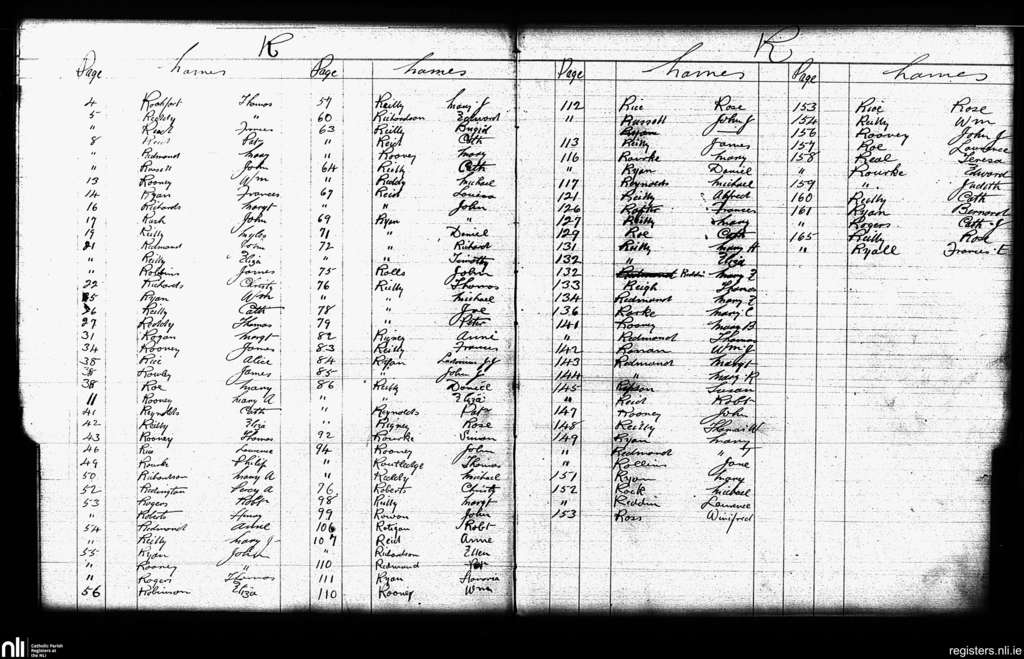 R
Page names Page names
4 Rochfort Thomas
5 Reddy "
" Reid James
8 Reid Patk
" Redmond Mary
" Russell John
13 Rooney Wm
14 Ryan Frances
16 Richards Margt
17 Rush John
19 Reilly Myles
21 Redmond John
" Reilly Eliza
" Robbins James
22 Richards Christy
25 Ryan Wm
26 Reilly Cath
27 Reddy Thomas
31 Rogan Margt
34 Rooney James
35 Rice Alice
38 Rowley James
38 Roe Mary
" Rooney Mary A
41 Reynolds Cath
42 Reilly Eliza
43 Rooney Thomas
46 Rice Laurence
49 Rourke Philip
50 Richardson Mary A
52 Redington Percy A
53 Rogers Robt
" Roberts Henry
54 Redmond Anne
" Reilly Mary J
55 Ryan John
" Rooney "
" Rogers Thomas
56 Robinson Eliza
57 Reilly Mary J
60 Richardson Edward
63 Reilly Brigid
" Reid Cath
" Rooney Mary
64 Reilly Cath
" Reddy Michael
67 Reid Louisa
" " John
69 Ryan "
71 " Daniel
72 " Richard
" " Timothy
75 Rolls John
76 Reilly Thomas
" " Michael
78 " Joe
79 " Peter
82 Rigney Anne
83 Reilly Frances
84 Ryan
85 " John
86 Reilly Daniel
" " Eliza
" Reynolds Patk
" Rigney Rose
92 Rourke Susan
94 Rooney John
" Routledge Thomas
" Reddy Michael
76 Roberts Christy
98 Reilly Margt
99 Rowan John
106 Ratigan Robt
107 Reid Anne
" Richardson Ellen
110 Redmond Pat
111 Ryan Hanoria
110 Rooney Wm
R
Page names Page names
112 Rice Rose
" Russell John J
Ryan
113 Reilly James
116 Rourke Mary
" Ryan Daniel
117 Reynolds Michael
121 Reilly Alfred
126 Rafter Frances
127 Reilly Mary
129 Roe Cath
131 Reilly Mary A
132 " Eliza
132 Redmond Mary E
133 Reigh Thomas
134 Redmond Mary E
136 Rorke Mary C
141 Rooney Mary B
" Redmond Thomas
142 Ronan Wm J
143 Redmond Margt
144 " Mary K
145 Susan
" Reid Robt
147 Rooney John
148 Reilly Thomas W
149 Ryan Mary
" Redmond " J
" Rollins Jane
151 Ryan Mary
152 Rock Michael
" Reddin Laurence
153 Ross Winifred
153 Rice Rose
154 Reilly Wm
156 Rooney John J
157 Roe Laurence
158 Real Teresa
" Rourke Edward
159 " Judith
160 Reilly Cath
161 Ryan Bernard
" Rogers Cath J
165 Reilly Rose
" Ryall Frances E
nli Catholic Parish
Registers at
the NLI
registers.nli.ie